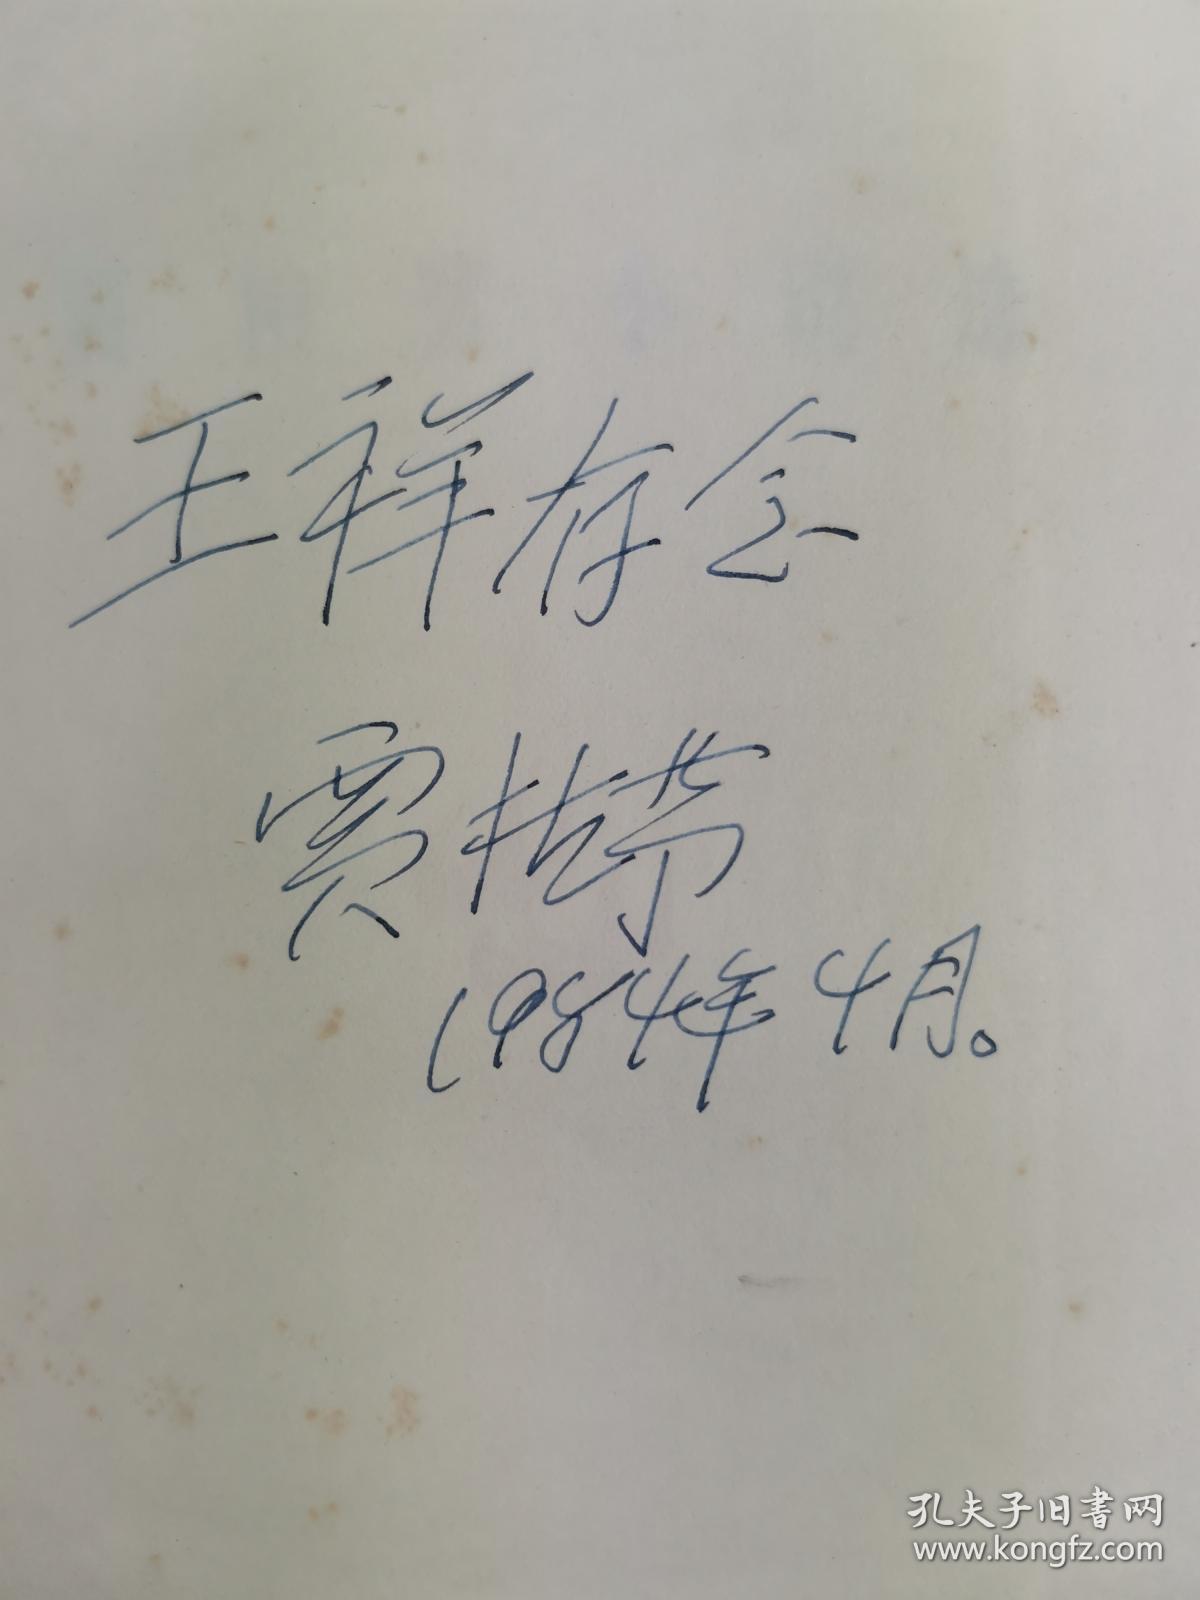 王祥存念
贾
1984年4月。
孔夫子旧书网
www.kongfz.com